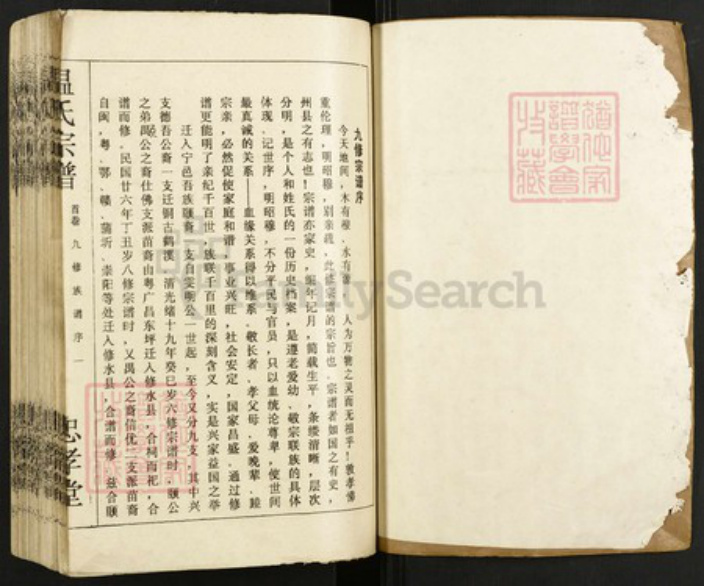 九修宗谱序
今天地间，木有根、水有源、人为万物之灵而无祖乎！敦孝悌
重伦理，明昭穆，别亲疏，此修宗谱的宗旨也。宗谱者如国之有史，
州县之有志也！宗谱亦家史，编年记月，简载生平，条缕清晰，层次
分明，是个人和姓氏的一份历史档案，是遵老爱幼、敬宗联族的具体
体现。记世序，明昭穆，不分平民与官员，只以血统论尊卑，使世间
最真诚的关系——血缘关系得以维系。敬长者、孝父母、爱晚辈、睦
宗亲，必然促使家庭和谐，事业兴旺，社会安定，国家昌盛。通过修
谱更能明了亲纪千百世，族联千百里的深刻含义，实是兴家益国之举
迁入宁邑吾族颐裔，支自雯明公一世起，至今又分九支，其中兴
支德吾公裔一支迁铜古鹤溪，清光绪十九年癸巳岁六修宗谱时，颐公
之弟禹公之裔仕佛支派苗裔由粤广昌东坪迁入修水县，合祠而祀，合
谱而修。民国廿六年丁丑岁八修宗谱时，又禹公之裔信优二支派苗裔
自闽，粤、鄂、赣、蒲圻、崇阳等处迁入修水县，合谱而修。兹合颐
温氏宗谱
首卷 九修族谱序 一
忠孝堂
FamilySearch
谱学会